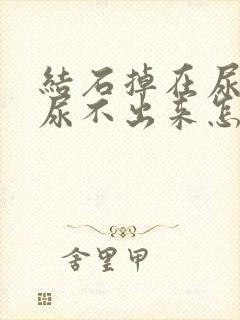 結石掉在尿
尿不出来怎
舍里甲